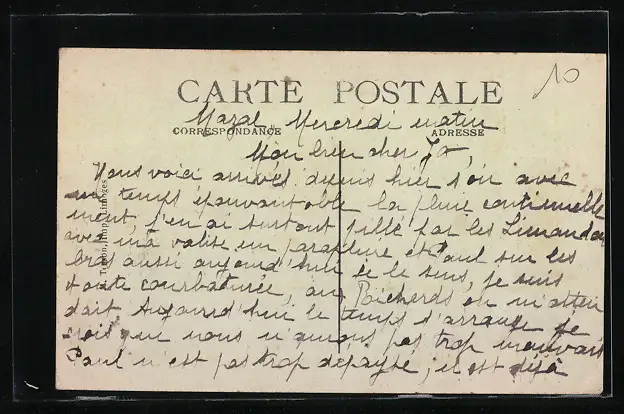 10
CARTE POSTALE
Mazal Mercredi matin
CORRESPONDANCE ADRESSE
Mon bien cher Jo,
Nous voici arrivés depuis hier soir avec
un temps épouvantable la pluie continuelle
ment, j'en ai surtout pillé par les
avec ma valise un parapluie et Paul sur les
bras aussi aujourd'hui je le sens, je suis
toute courbaturée, aux Richerds on m'atten
dait Aujourd'hui le temps s'arrange je
crois que nous n'aurons pas trop mauvais
Paul n'est pas trop dépaysé, il est déjà